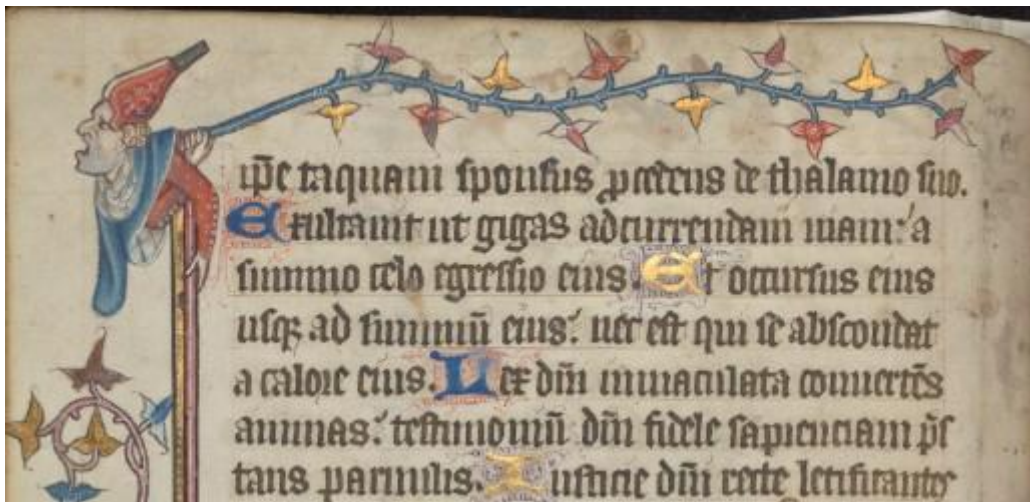 ip̄e taquam sponsus ꝓcedens de thalamo suo.
Exultauit ut gigas ad currendam uiam: a
summo celo egressio eius. Et occursus eius
usqꝫ ad summū eius: nec est qui se abscondat
a calore eius. Lex dn̄i immaculata conuertēs
animas: testimoniū dn̄i fidele sapienciam p̄s
tans paruulis. Iusticie dn̄i recte letificantes